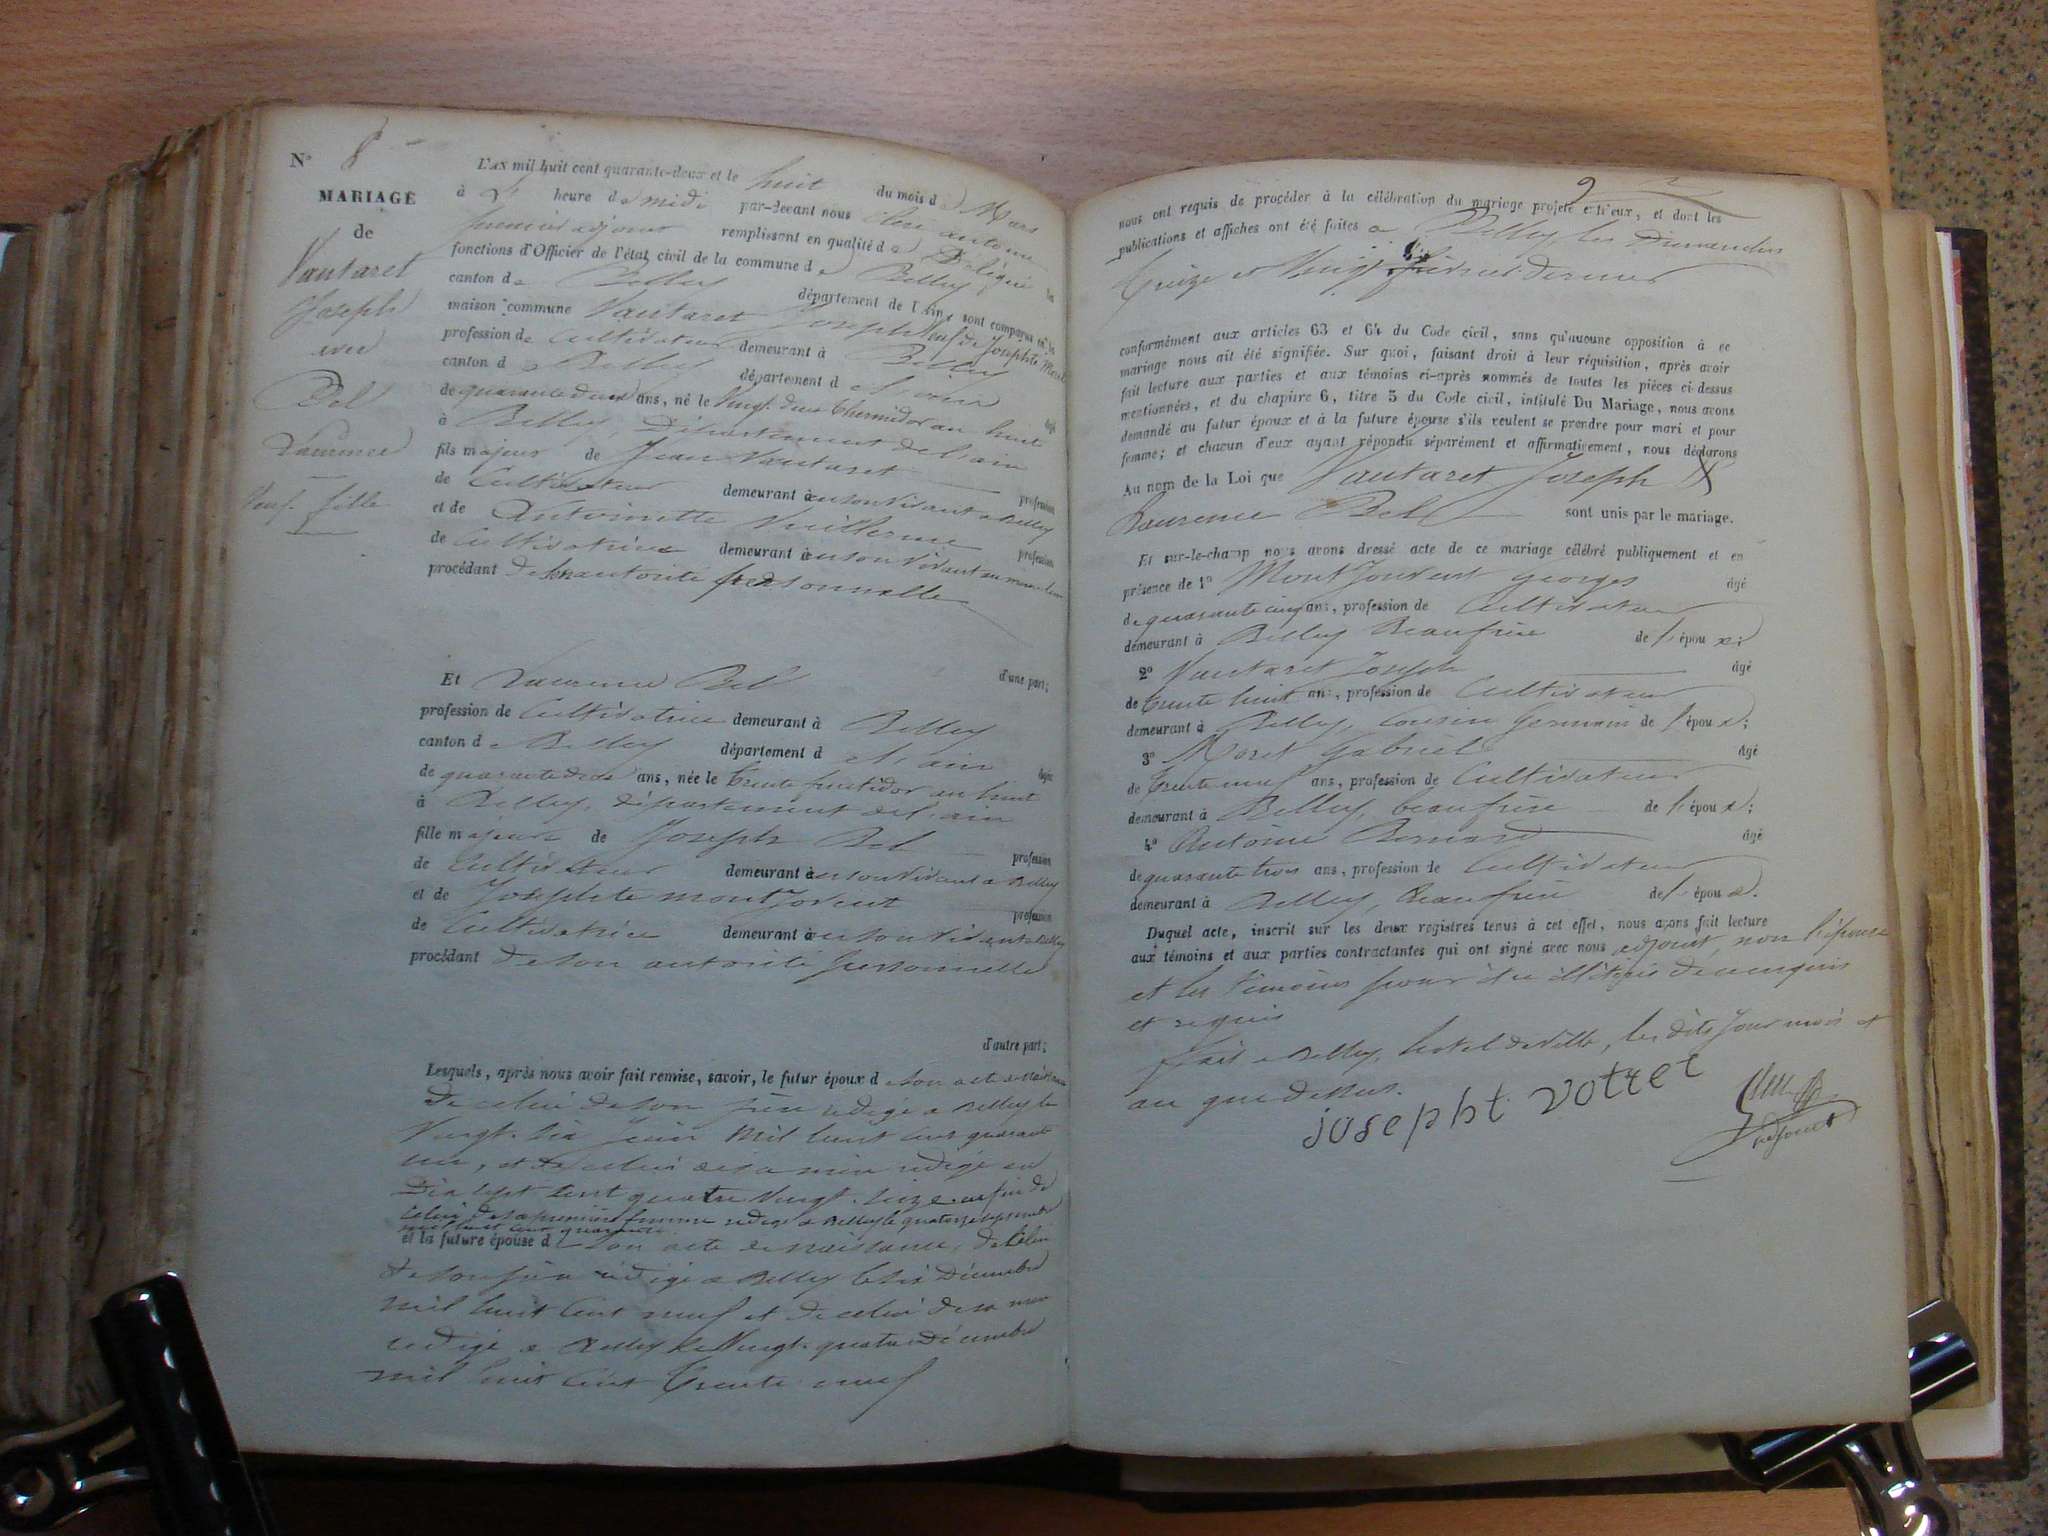 N° 8
MARIAGE
de
Vautaret
Joseph
avec
Bel
Laurence
Veuf. fille
L'AN mil huit cent quarante-deux et le huit du mois de Mars
à heure de midi par-devant nous antoine
premier adjoint remplissant en qualité de Délégué les
fonctions d'Officier de l'état civil de la commune de Belley
canton de Belley département de l'Ain, sont comparus en la
maison commune Vautaret Joseph Veuf de Josephte Moret
profession de Cultivateur demeurant à Belley
canton de Belley département de l'ain âgé
de quarante deux ans, né le Vingt deux thermidor an huit
à Belley, Département de l'ain
fils majeur de Jean Vautaret profession
de Cultivateur demeurant à en son vivant a Belley
et de Antoinette Vuillerme profession
de Cultivatrice demeurant à en son vivant au meme lieu
procédant de son autorité personnelle
d'une part;
Et Laurence Bel
profession de Cultivatrice demeurant à Belley
canton de Belley département de l'ain âgée
de quarante deux ans, née le trente fructidor an huit
à Belley, département de l'ain
fille majeure de Joseph Bel profession
de Cultivateur demeurant à en son vivant a Belley
et de Josephte montJovent profession
de Cultivatrice demeurant à en son vivant a Belley
procédant de son autorité personnelle
d'autre part;
Lesquels, après nous avoir fait remise, savoir, le futur époux de son acte de naissance
de celui de son père rédigé a Belley le
Vingt. six Juin mil huit cent quarante
un, et de celui de sa mère rédigé en
Dix sept cent quatre Vingt. seize. enfin de
celui de sa première femme rédigé a Belley le quatorze septembre
mil huit cent quarante
et la future épouse de son acte de naissance, de celui
de son père rédigé a Belley le six Décembre
mil huit cent neuf et de celui de sa mere
rédigé a Belley le Vingt. quatre Décembre
mil huit cent trente neuf
9
nous ont requis de procéder à la célébration du mariage projeté entr'eux, et dont les
publications et affiches ont été faites a Belley les Dimanches
treize et Vingt février dernier
conformément aux articles 63 et 64 du Code civil, sans qu'aucune opposition à ce
mariage nous ait été signifiée. Sur quoi, faisant droit à leur réquisition, après avoir
fait lecture aux parties et aux témoins ci-après nommés de toutes les pièces ci-dessus
mentionnées, et du chapitre 6, titre 5 du Code civil, intitulé Du Mariage, nous avons
demandé au futur époux et à la future épouse s'ils veulent se prendre pour mari et pour
femme; et chacun d'eux ayant répondu séparément et affirmativement, nous déclarons
Au nom de la Loi que Vautaret Joseph &
Laurence Bel sont unis par le mariage.
Et sur-le-champ nous avons dressé acte de ce mariage célébré publiquement et en
présence de 1° MontJouvent georges âgé
de quarante cinq ans, profession de Cultivateur
demeurant à Belley Beaufrère de l'époux;
2° Vautaret Joseph âgé
de trente huit ans, profession de Cultivateur
demeurant à Belley, cousin Germain de l'époux;
3° Moret Gabriel âgé
de trente neuf ans, profession de Cultivateur
demeurant à Belley, beaufrère de l'époux;
4° Antoine Bernard âgé
de quarante trois ans, profession de Cultivateur
demeurant à Belley, Beaufrère de l'époux.
Duquel acte, inscrit sur les deux registres tenus à cet effet, nous avons fait lecture
aux témoins et aux parties contractantes qui ont signé avec nous adjoint non l'épouse
et les témoins pour être illitérés de ce enquis
et requis
fait a Belley, hotel de ville, les dits Jour mois et
an que dessus.
josepht votret
adjoint